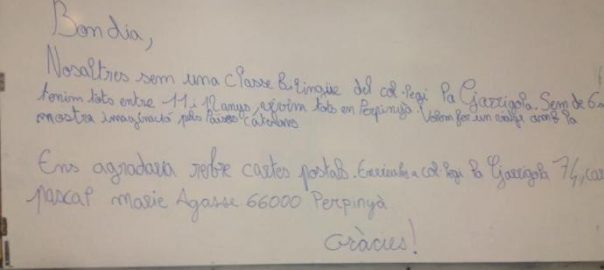 Bon dia,
Nosaltres sem una classe bilingüe del col·legi la Garrigola. Sem de 6
tenim tots entre 11 i 12 anys, vivim tots en Perpinyà. Volem fer un viatge amb la
nostra imaginació pels Països Catalans
Ens agradaria rebre cartes postals. Envieu-les a col·legi la Garrigola 74, car
pascal marie Agasse 66000 Perpinyà
Gràcies!